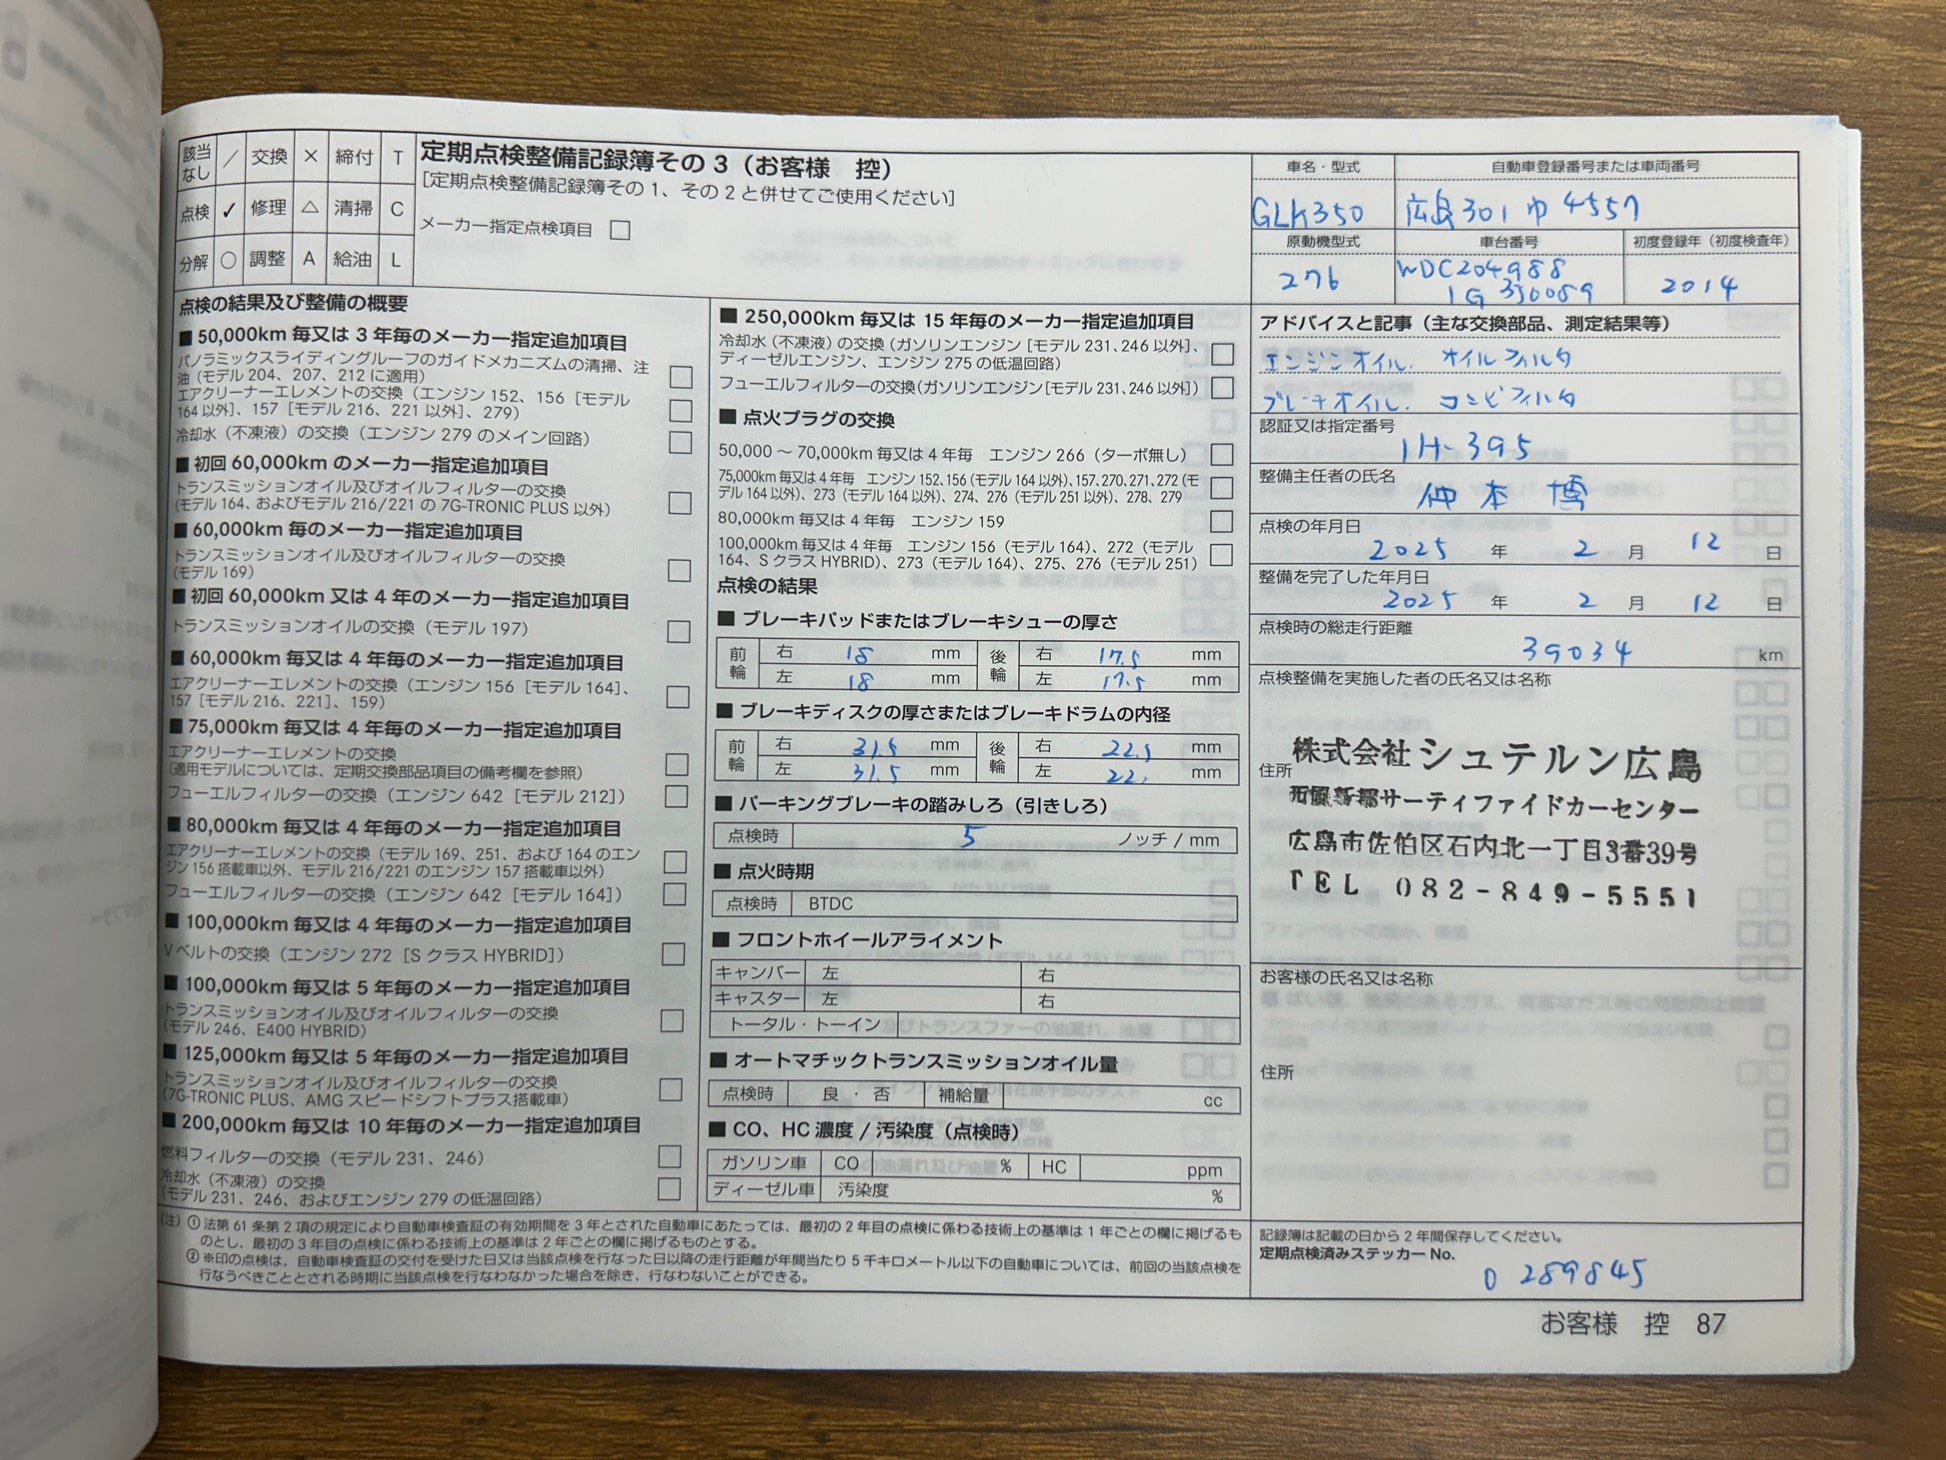 該当なし ／ 交換 × 締付 T
点検 ✓ 修理 △ 清掃 C
分解 ○ 調整 A 給油 L
定期点検整備記録簿その3（お客様 控）
［定期点検整備記録簿その1、その2と併せてご使用ください］
メーカー指定点検項目 □
点検の結果及び整備の概要
■ 50,000km 毎又は 3 年毎のメーカー指定追加項目
パノラミックスライディングルーフのガイドメカニズムの清掃、注
油（モデル 204、207、212 に適用） □
エアクリーナーエレメントの交換（エンジン 152、156［モデル
164 以外］、157［モデル 216、221 以外］、279） □
冷却水（不凍液）の交換（エンジン 279 のメイン回路） □
■ 初回 60,000km のメーカー指定追加項目
トランスミッションオイル及びオイルフィルターの交換
（モデル 164、およびモデル 216/221 の 7G-TRONIC PLUS 以外） □
■ 60,000km 毎のメーカー指定追加項目
トランスミッションオイル及びオイルフィルターの交換
（モデル 169） □
■ 初回 60,000km 又は 4 年のメーカー指定追加項目
トランスミッションオイルの交換（モデル 197） □
■ 60,000km 毎又は 4 年毎のメーカー指定追加項目
エアクリーナーエレメントの交換（エンジン 156［モデル 164］、
157［モデル 216、221］、159） □
■ 75,000km 毎又は 4 年毎のメーカー指定追加項目
エアクリーナーエレメントの交換
（適用モデルについては、定期交換部品項目の備考欄を参照） □
フューエルフィルターの交換（エンジン 642［モデル 212］） □
■ 80,000km 毎又は 4 年毎のメーカー指定追加項目
エアクリーナーエレメントの交換（モデル 169、251、および 164 のエン
ジン 156 搭載車以外、モデル 216/221 のエンジン 157 搭載車以外） □
フューエルフィルターの交換（エンジン 642［モデル 164］） □
■ 100,000km 毎又は 4 年毎のメーカー指定追加項目
V ベルトの交換（エンジン 272［S クラス HYBRID］） □
■ 100,000km 毎又は 5 年毎のメーカー指定追加項目
トランスミッションオイル及びオイルフィルターの交換
（モデル 246、E400 HYBRID） □
■ 125,000km 毎又は 5 年毎のメーカー指定追加項目
トランスミッションオイル及びオイルフィルターの交換
（7G-TRONIC PLUS、AMG スピードシフトプラス搭載車） □
■ 200,000km 毎又は 10 年毎のメーカー指定追加項目
燃料フィルターの交換（モデル 231、246） □
冷却水（不凍液）の交換
（モデル 231、246、およびエンジン 279 の低温回路） □
■ 250,000km 毎又は 15 年毎のメーカー指定追加項目
冷却水（不凍液）の交換（ガソリンエンジン［モデル 231、246 以外］、
ディーゼルエンジン、エンジン 275 の低温回路） □
フューエルフィルターの交換（ガソリンエンジン［モデル 231、246 以外］） □
■ 点火プラグの交換
50,000 〜 70,000km 毎又は 4 年毎 エンジン 266（ターボ無し） □
75,000km 毎又は 4 年毎 エンジン 152、156（モデル 164 以外）、157、270、271、272（モ
デル 164 以外）、273（モデル 164 以外）、274、276（モデル 251 以外）、278、279 □
80,000km 毎又は 4 年毎 エンジン 159 □
100,000km 毎又は 4 年毎 エンジン 156（モデル 164）、272（モデル
164、S クラス HYBRID）、273（モデル 164）、275、276（モデル 251） □
点検の結果
■ ブレーキパッドまたはブレーキシューの厚さ
前輪 右 18 mm 後輪 右 17.5 mm
左 18 mm 左 17.5 mm
■ ブレーキディスクの厚さまたはブレーキドラムの内径
前輪 右 31.5 mm 後輪 右 22.5 mm
左 31.5 mm 左 22. mm
■ パーキングブレーキの踏みしろ（引きしろ）
点検時 5 ノッチ / mm
■ 点火時期
点検時 BTDC
■ フロントホイールアライメント
キャンバー 左 右
キャスター 左 右
トータル・トーイン
■ オートマチックトランスミッションオイル量
点検時 良 ・ 否 補給量 cc
■ CO、HC 濃度 / 汚染度（点検時）
ガソリン車 CO % HC ppm
ディーゼル車 汚染度 %
車名・型式 自動車登録番号または車両番号
GLK350 広島 301 4557
原動機型式 車台番号 初度登録年（初度検査年）
276 WDC204988 2014
1G 350059
アドバイスと記事（主な交換部品、測定結果等）
エンジンオイル. オイルフィルタ
ブレーキオイル. コンビフィルタ
認証又は指定番号
1H-395
整備主任者の氏名
仲本 博
点検の年月日
2025 年 2 月 12 日
整備を完了した年月日
2025 年 2 月 12 日
点検時の総走行距離
39034 km
点検整備を実施した者の氏名又は名称
株式会社シュテルン広島
住所
西風新都サーティファイドカーセンター
広島市佐伯区石内北一丁目3番39号
TEL 082-849-5551
お客様の氏名又は名称
住所
（注）① 法第 61 条第 2 項の規定により自動車検査証の有効期間を 3 年とされた自動車にあたっては、最初の 2 年目の点検に係わる技術上の基準は 1 年ごとの欄に掲げるも
のとし、最初の 3 年目の点検に係わる技術上の基準は 2 年ごとの欄に掲げるものとする。
② ※印の点検は、自動車検査証の交付を受けた日又は当該点検を行なった日以降の走行距離が年間当たり 5 千キロメートル以下の自動車については、前回の当該点検を
行なうべきこととされる時期に当該点検を行なわなかった場合を除き、行なわないことができる。
記録簿は記載の日から 2 年間保存してください。
定期点検済みステッカー No.
0 289845
お客様 控 87